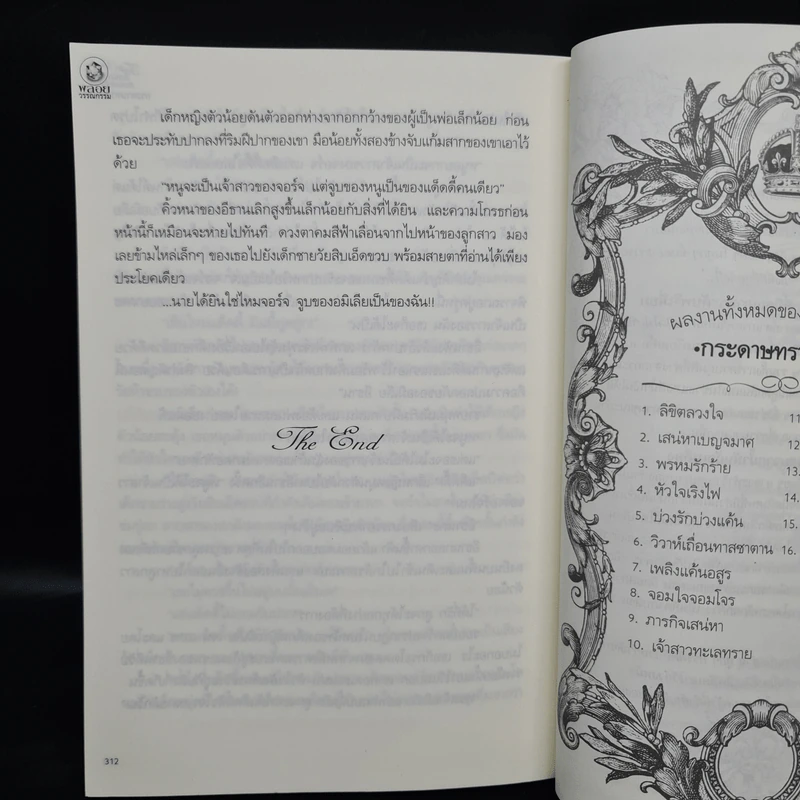 พลอย
วรรณกรรม
เด็กหญิงตัวน้อยดันตัวออกห่างจากอกกว้างของผู้เป็นพ่อเล็กน้อย ก่อน
เธอจะประทับปากลงที่ริมฝีปากของเขา มือน้อยทั้งสองข้างจับแก้มสากของเขาเอาไว้
ด้วย
“หนูจะเป็นเจ้าสาวของจอร์จ แต่จูบของหนูเป็นของแด็ดดี้คนเดียว”
คิ้วหนาของอีธานเลิกสูงขึ้นเล็กน้อยกับสิ่งที่ได้ยิน และความโกรธก่อน
หน้านี้ก็เหมือนจะหายไปทันที ดวงตาคมสีฟ้าเลื่อนจากใบหน้าของลูกสาว มอง
เลยข้ามไหล่เล็กๆ ของเธอไปยังเด็กชายวัยสิบเอ็ดขวบ พร้อมสายตาที่อ่านได้เพียง
ประโยคเดียว
...นายได้ยินใช่ไหมจอร์จ จูบของอมิเลียเป็นของฉัน!!
The End
312
ผลงานทั้งหมดของ
•กระดาษทรา
1. ลิขิตลวงใจ 11
2. เสน่หาเบญจมาศ 12
3. พรหมรักร้าย 13.
4. หัวใจเริงไฟ 14.
5. บ่วงรักบ่วงแค้น 15.
6. วิวาห์เถื่อนทาสซาตาน 16.
7. เพลิงแค้นอสูร
8. จอมใจจอมโจร
9. ภารกิจเสน่หา
10. เจ้าสาวทะเลทราย